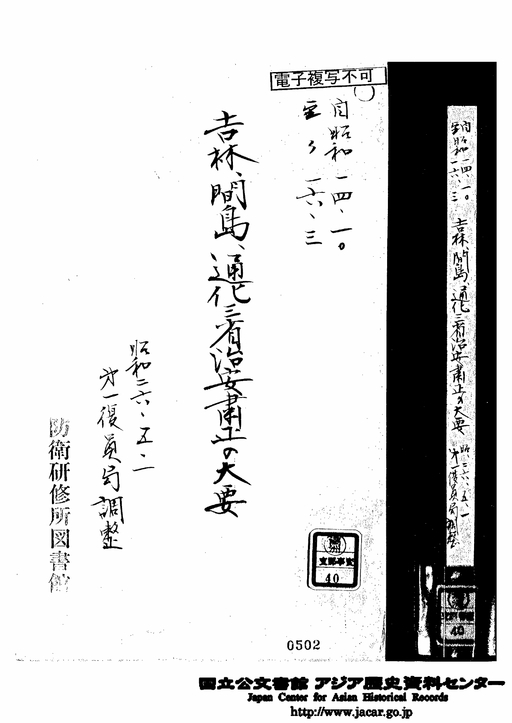 電子複写不可
自昭和一四、一〇
至〃一六、三
吉林、間島、通化三省治安粛正の大要
昭和二六、五、一
第一復員局調整
防衛研修所図書館
満州
支那事変
40
0502
至自昭和一四、一〇
一六、三
吉林、間島、通化三省治安粛正の大要
昭二六、五、一
第一復員局調整
40
国立公文書館 アジア歴史資料センター
Japan Center for Asian Historical Records
http://www.jacar.go.jp